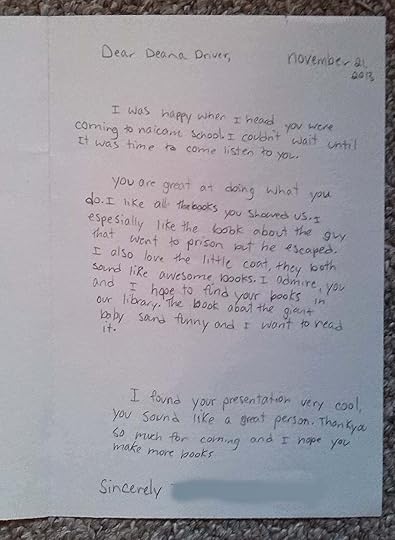 Dear Deana Driver,
november 21,
2013
I was happy when I heard you were
coming to naicam school. I couldn't wait until
It was time to come listen to you.
you are great at doing what you
do. I like all the books you showed us. I
espesially like the book about the guy
that went to prison but he escaped.
I also love the little coat, they both
sand like awesome books. I admire, you
and I hope to find your books in
our library. The book about the giant
baby sand funny and I want to read
it.
I found your presentation very cool,
you sound like a great person. Thankyou
so much for coming and I hope you
make more books
Sincerely